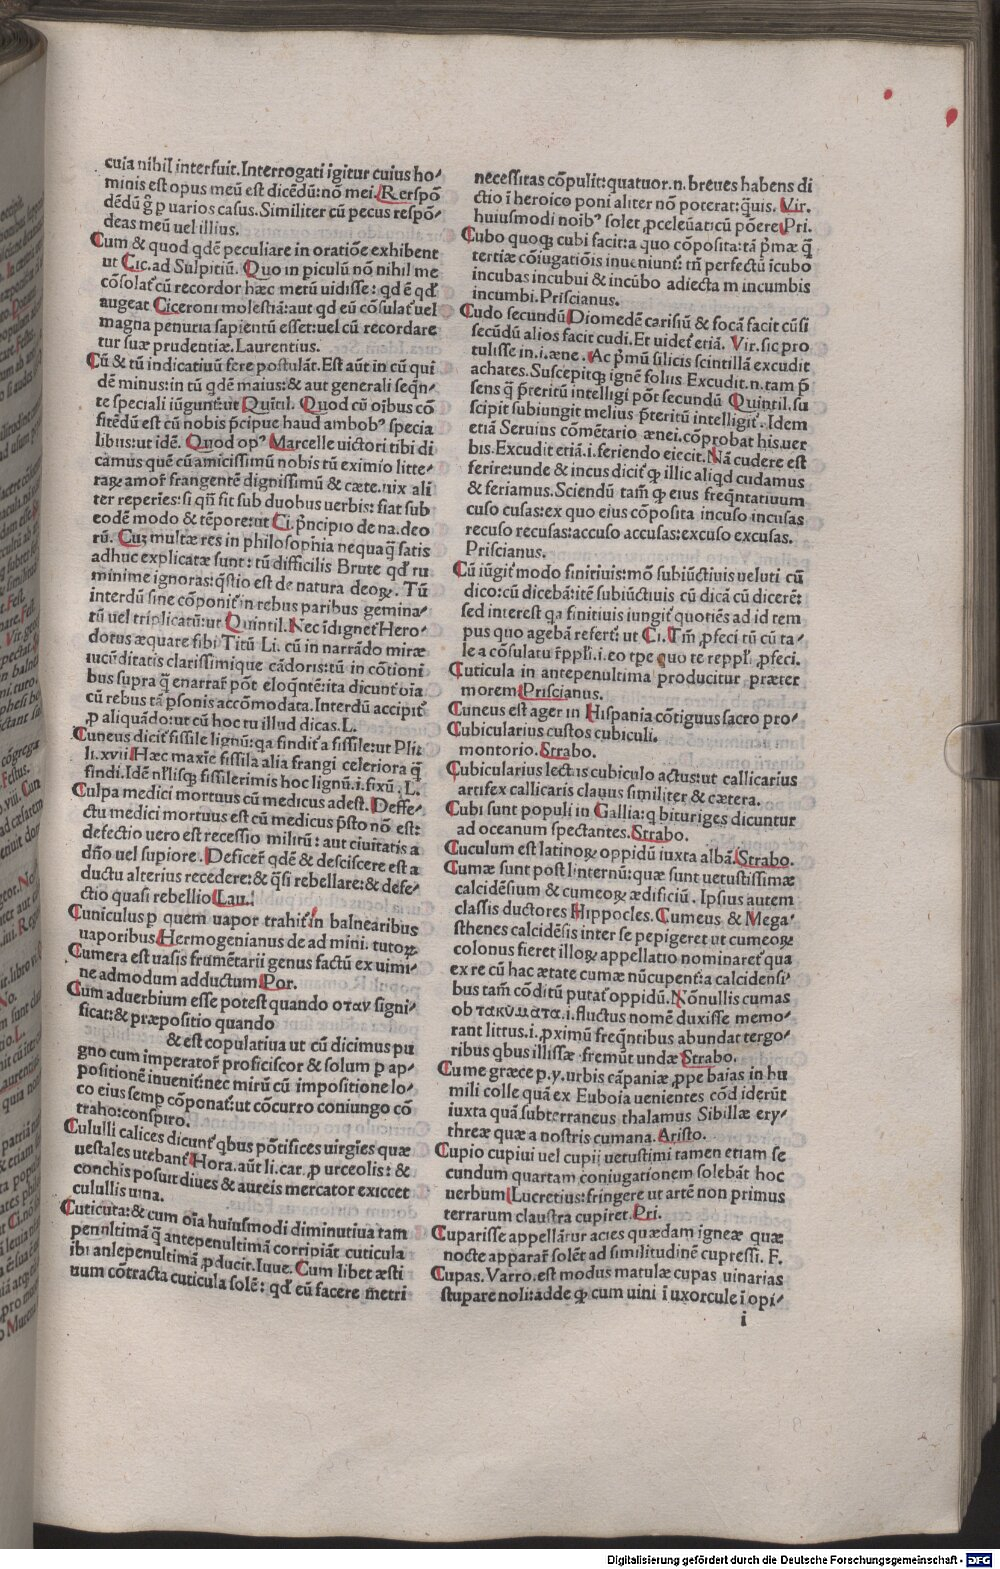 cuia nihil interfuit. Interrogati igitur cuius ho⸗
minis est opus meũ est dicẽdũ: nõ mei. Rerspõ
dẽdũ g̃ ꝑ uarios casus. Similiter cũ pecus respõ⸗
deas meũ uel illius.
Cum & quod qdẽ peculiare in oratiõe exhibent
ut Cic. ad Sulpitiũ. Quo in piculũ nõ nihil me
cõsolat̃ cũ recordor hæc metũ uidisse: qd ẽ qd̃
augeat Ciceroni molestiã: aut qd eũ cõsulat̃ uel
magna penuria sapientũ esset: uel cũ recordare
tur suæ prudentiæ. Laurentius.
Cũ & tũ indicatiuũ fere postulãt. Est aũt in cũ qui
dẽ minus: in tũ qdẽ maius: & aut generali seq̃n⸗
te speciali iũgunt: ut Quĩtil. Quod cũ oĩbus cõ
fitẽdũ est cũ nobis p̃cipue haud ambobꝰ specia
libus: ut idẽ. Quod opꝰ Marcelle uictori tibi di
camus quẽ cũ amicissimũ nobis tũ eximio litte⸗
raꝝ amor̃ frangentẽ dignissimũ & cæte. uix ali
ter reperies: si qñ fit sub duobus uerbis: fiat sub
eodẽ modo & tẽpore: ut Ci. p̃ncipio de na. deo
rũ. Cuʒ multæ res in philosophia nequaq̃ satis
adhuc explicatæ sunt: tũ difficilis Brute qd̃ tu
minime ignoras: q̃stio est de natura deoꝝ. Tũ
interdũ sine cõponit̃ in rebus paribus gemina⸗
tũ uel triplicatũ: ut Quintil. Nec ĩdignet̃ Hero⸗
dotus æquare sibi Titũ Li. cũ in narrãdo miræ
iucũditatis clarissimique cãdoris: tũ in cõtioni
bus supra q̃ enarrar̃ põt eloq̃ntẽ: ita dicunt̃ oĩa
cũ rebus tã p̃sonis accõmodata. Interdũ accipit̃
ꝓ aliquãdo: ut cũ hoc tu illud dicas. L.
Cuneus dicit̃ fissile lignũ: qa findit̃ a fissile: ut Plii
li. xvii Hæc maxie fissila alia frangi celeriora q̃
findi. Idẽ nr̃lisqꝫ fissilerimis hoc lignũ. i. fixũ. L.
Culpa medici mortuus cũ medicus adest. Deffe⸗
ctu medici mortuus est cũ medicus p̃sto nõ est:
defectio uero est recessio militũ: aut ciuitatis a
dño uel supiore. Deficer̃ qdẽ & desciscere est a
ductu alterius recedere: & q̃si rebellare: & defe⸗
ctio quasi rebellio Lau.
Cuniculus ꝑ quem uapor trahit̃ in balnearibus
uaporibus Hermogenianus de ad mini. tutoꝝ
Cumera est uasis frumẽtarii genus factũ ex uimi⸗
ne admodum adductum Por.
Cum aduerbium esse potest quando οταν signi⸗
ficat: & præpositio quando
& est copulatiua ut cũ dicimus pu
gno cum imperator̃ proficiscor & solum ꝑ ap⸗
positionẽ inuenit̃: nec mirũ cũ impositione lo⸗
co eius semp cõponat̃: ut cõcurro coniungo cõ
traho: conspiro.
Cululli calices dicunt̃ qbus põtifices uirgĩes quæ
uestales utebant̃ Hora. aũt li. car. ꝓ urceolis: &
conchis posuit diues & aureis mercator exiccet
culullis uina.
Cuticuta: & cum oĩa huiusmodi diminutiua tam
penultimã q̃ antepenultimã corripiãt cuticula
ibi anlepenultimã ꝓducit. Iuue. Cum libet æsti
uum cõtracta cuticula solẽ: qd̃ eũ facere metri
necessitas cõpulit: quatuor. n. breues habens di
ctio ĩ heroico poni aliter nõ poterat: q̃uis. Vir.
huiusmodi noibꝰ solet ꝓceleũaticũ põere Pri.
Cubo quoqꝫ cubi facit: a quo cõposita: tã p̃mæ q̃
tertiæ cõiugatiõis inueniunt̃: tñ perfectũ ĩcubo
incubas incubui & incũbo adiecta m incumbis
incumbi. Priscianus.
Cudo secundũ Diomedẽ carisiũ & focã facit cũsi
secũdũ alios facit cudi. Et uidet̃ etiã. Vir. sic pro
tulisse in. i. æne. Ac p̃mũ silicis scintillã excudit
achates. Suscepitqꝫ ignẽ foliis Excudit. n. tam p̃
sens q̃ p̃teritũ intelligi põt secundũ Quintil. su
scipit subiungit melius p̃teritũ intelligit̃. Idem
etiã Seruius cõmẽtario ænei. cõprobat his. uer
bis. Excudit etiã. i. feriendo eiecit. Nã cudere est
ferire: unde & incus dicit̃ qꝫ illic aliqd cudamus
& feriamus. Sciendũ tam̃ qꝫ eius freq̃ntatiuum
cuso cusas: ex quo eius cõposita incuso incusas
recuso recusas: accuso accusas: excuso excusas.
Priscianus.
Cũ iũgit̃ modo finitiuis: mõ subiũctiuis ueluti cũ
dico: cũ dicebã: itẽ subiũctiuis cũ dicã cũ dicerẽ:
sed interest qa finitiuis iungit̃ quotiẽs ad id tem
pus quo agebã refert̃: ut Ci. Tm̃ ꝓfeci tũ cũ ta⸗
le a cõsulatu r̃ppli. i. eo tpe quo te reppli ꝓfeci.
Cuticula in antepenultima producitur præter
morem Priscianus.
Cuneus est ager in Hispania cõtiguus sacro pro⸗
Cubicularius custos cubiculi.
montorio. Strabo.
Cubicularius lectus cubiculo actus: ut callicarius
artifex callicaris clauus similiter & cætera.
Cubi sunt populi in Gallia: q bituriges dicuntur
ad oceanum spectantes. Strabo.
Cuculum est latinoꝝ oppidũ iuxta albã. Strabo.
Cumæ sunt post lĩnternũ: quæ sunt uetustissimæ
calcidẽsium & cumeoꝝ ædificiũ. Ipsius autem
classis ductores Hippocles. Cumeus & Mega⸗
sthenes calcidẽsis inter se pepigeret ut cumeoꝝ
colonus fieret illoꝝ appellatio nominaret̃ qua
ex re cũ hac ætate cumæ nũcupent̃: a calcidensi⸗
bus tam̃ cõditũ putat̃ oppidũ. Nõnullis cumas
ob τακυματα. i. fluctus nomẽ duxisse memo⸗
rant littus. i. ꝓximũ freq̃ntibus abundat tergo⸗
ribus qbus illissæ fremũt undæ Strabo.
Cume græce p. y. urbis cãpaniæ ꝓpe baias in hu
mili colle quã ex Euboia uenientes cõd iderũt
iuxta quã subterraneus thalamus Sibillæ ery⸗
thræ quæ a nostris cumana. Aristo.
Cupio cupiui uel cupii uetustimi tamen etiam se
cundum quartam coniugationem solebãt hoc
uerbum Lucretius: fringere ut artẽ non primus
terrarum claustra cupiret. Pri.
Cuparisse appellãrur acies quædam igneæ quæ
nocte apparar̃ solẽt ad similitudinẽ cupressi. F.
Cupas. Varro. est modus matulæ cupas uinarias
stupare noli: adde qꝫ cum uini ĩ uxorcule ĩ opi⸗
i
Digitalisierung gefördert durch die Deutsche Forschungsgemeinschaft - DFG